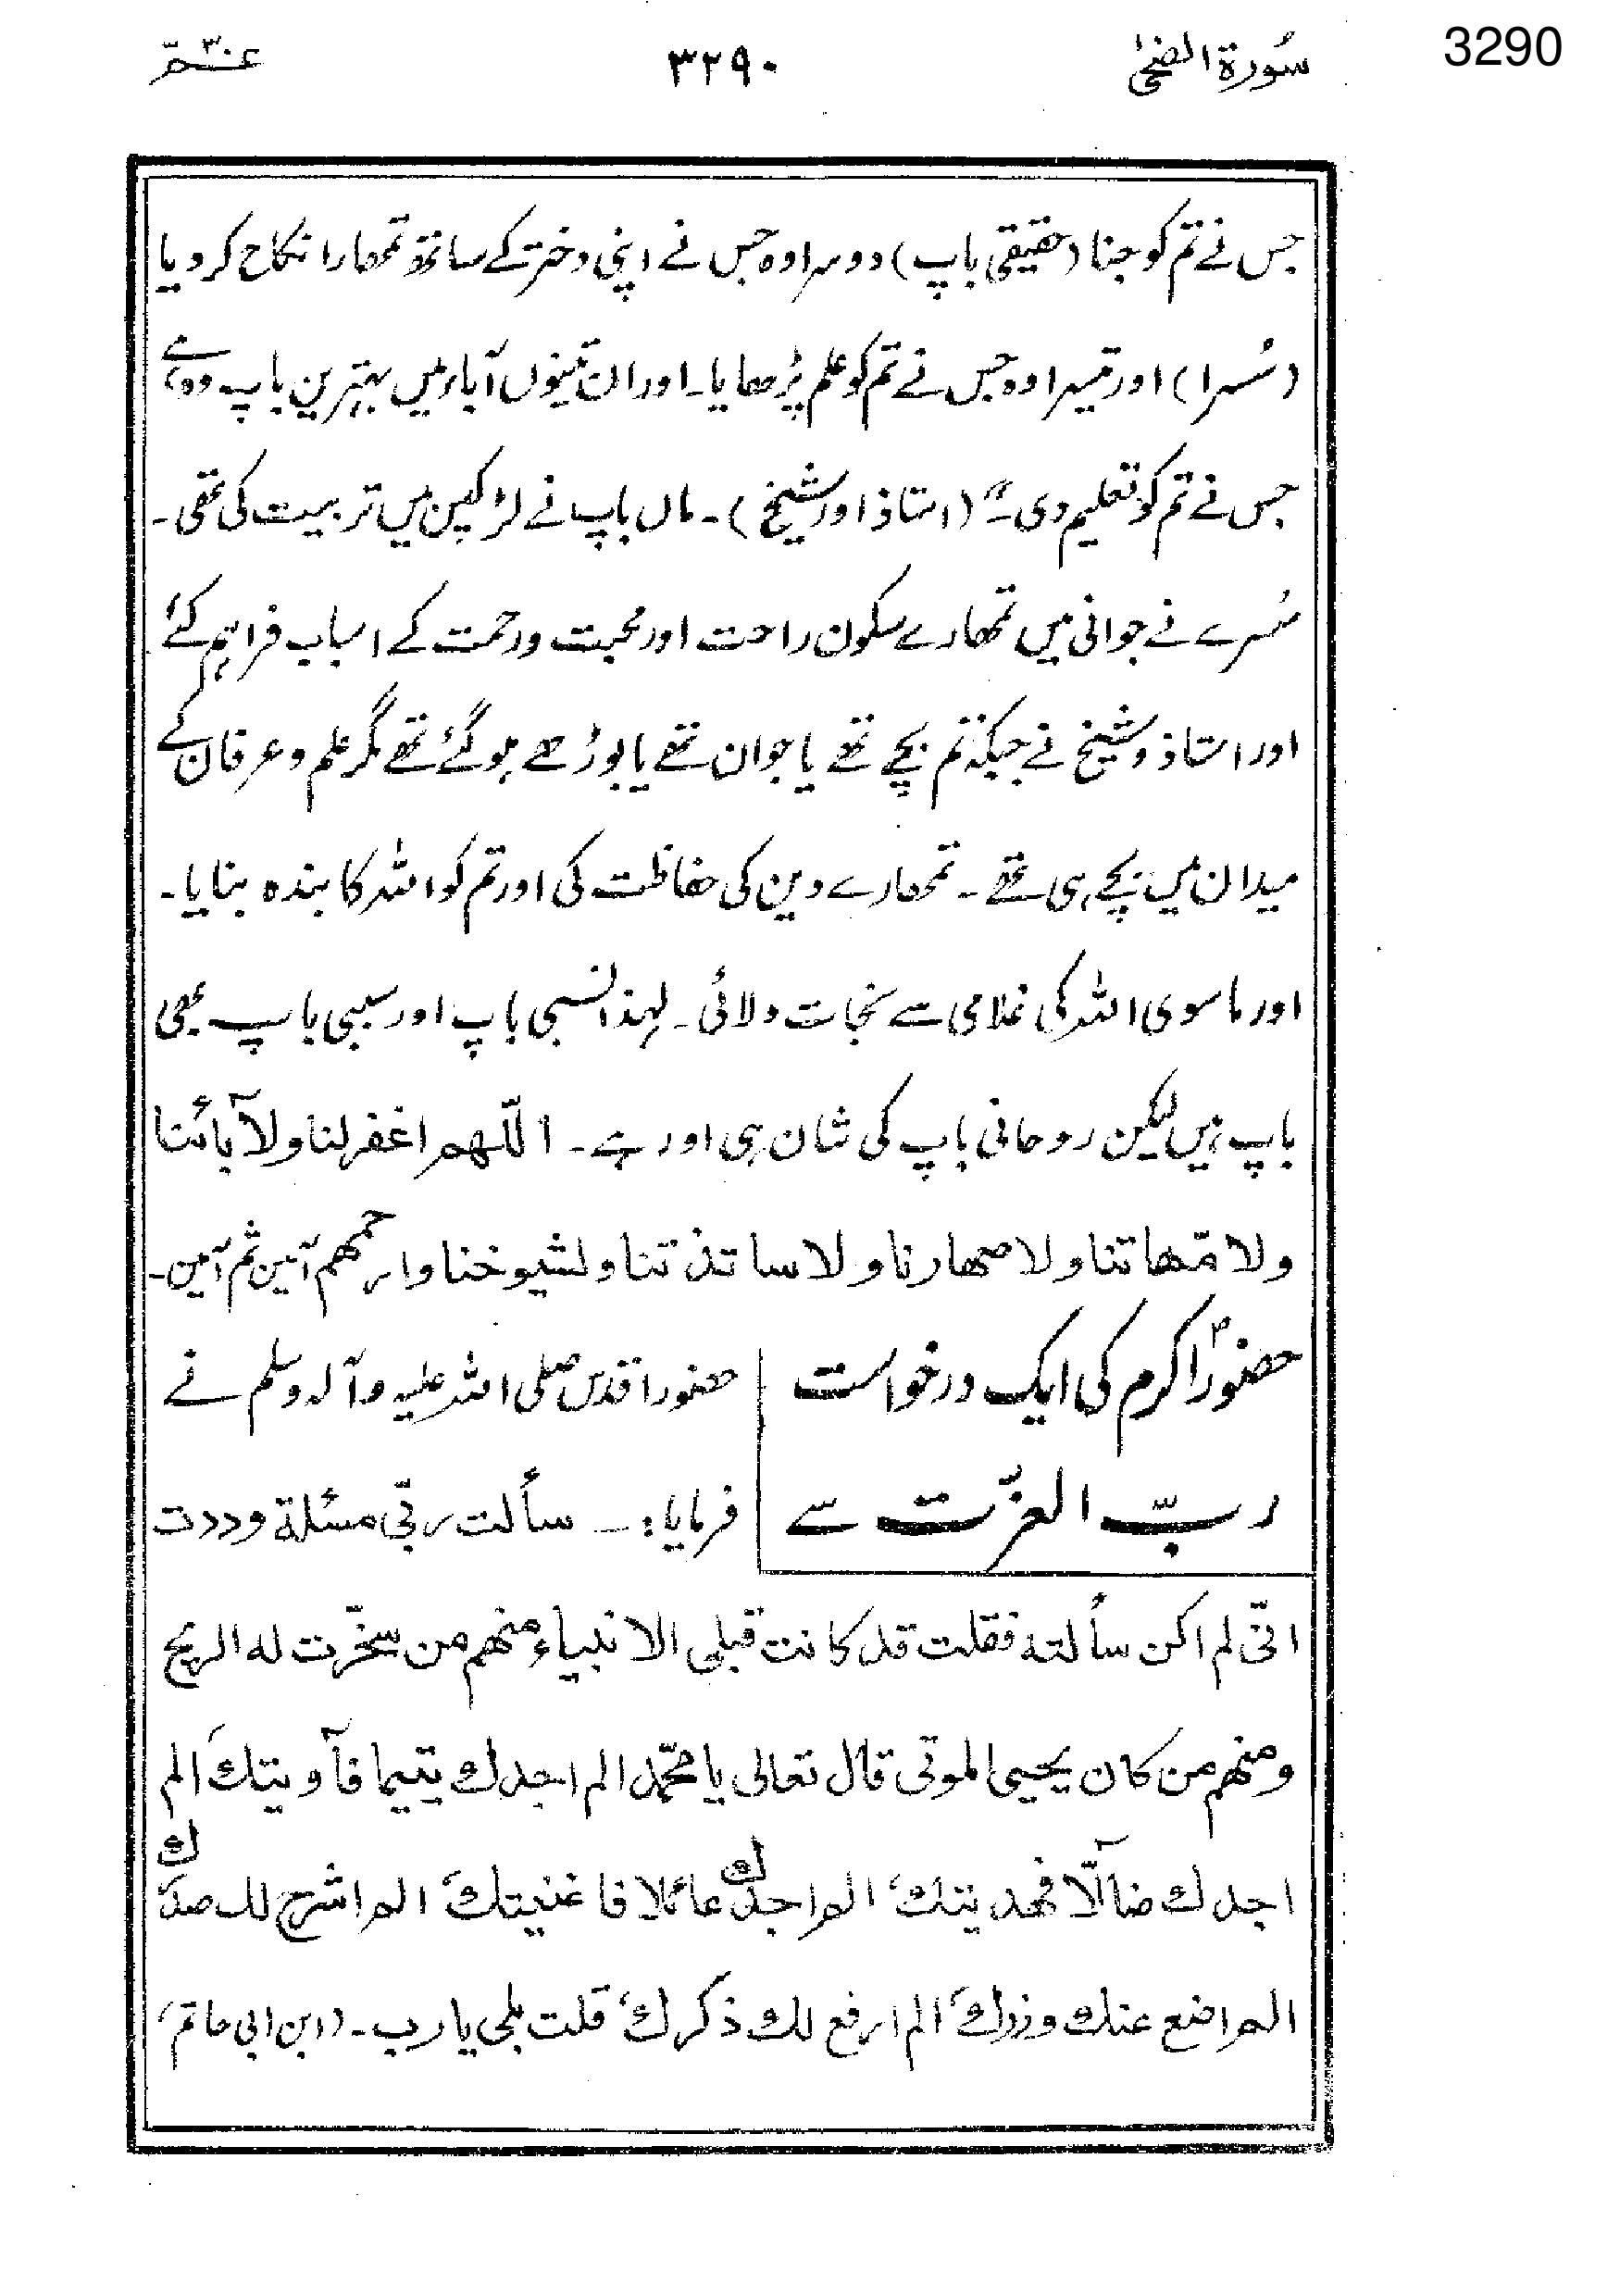 3290
سُورة الضحیٰ ۳۲۹۰ عۤمّ ۳۰
جس نے تم کو جنا (حقیقی باپ) دوسرا وہ جس نے اپنی دختر کے ساتھ تمھارا نکاح کر دیا
(سُسرا) اور تیسرا وہ جس نے تم کو علم پڑھایا۔ اور ان تینوں آباء میں بہترین باپ وہ ہے
جس نے تم کو تعلیم دی۔" (استاذ اور شیخ)۔ ماں باپ نے لڑکپن میں تربیت کی تھی۔
سُسرے نے جوانی میں تمھارے سکون راحت اور محبت ورحمت کے اسباب فراہم کئے
اور استاذ و شیخ نے جبکہ تم بچے تھے یا جوان تھے یا بوڑھے ہو گئے تھے مگر علم و عرفان کے
میدان میں بچے ہی تھے۔ تمھارے دین کی حفاظت کی اور تم کو اللہ کا بندہ بنایا۔
اور ماسوی اللہ کی غلامی سے نجات دلائی۔ لہٰذا نسبی باپ اور سببی باپ بھی
باپ ہیں لیکن روحانی باپ کی شان ہی اور ہے۔ اللّٰھم اغفر لنا ولآبائنا
ولامّھاتنا ولاصھارنا ولاساتذتنا ولشیوخنا وارحمھم آمین ثم آمین۔
حضورؐ اکرم کی ایک درخواست حضور اقدس صلی اللہ علیہ وآلہ وسلم نے
ربّ العزّت سے فرمایا:۔ سألت ربّی مسئلۃ وددت
انّی لم اکن سألتہ فقلت قد کانت قبلی الانبیاء منھم من سخّرت لہ الریح
ومنھم من کان یحیی الموتی قال تعالی یا محمّد الم اجدك یتیما فآویتكَ الم
اجدك ضآلّا فھدیتك، الم اجدك عائلا فاغنیتكَ الم اشرح لك صدرك
الم اضع عنك وزرك الم ارفع لك ذکرك، قلت بلی یا رب۔ (ابن ابی حاتم،